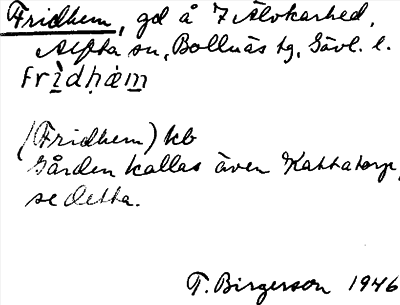 Fridhem, gd å 7 Älvkarhed,
Alfta sn, Bollnäs tg, Gävl. l.
frìdhæm
(Fridhem) kb
Gården kallas även Kattatorp,
se detta.
T. Birgerson 1946